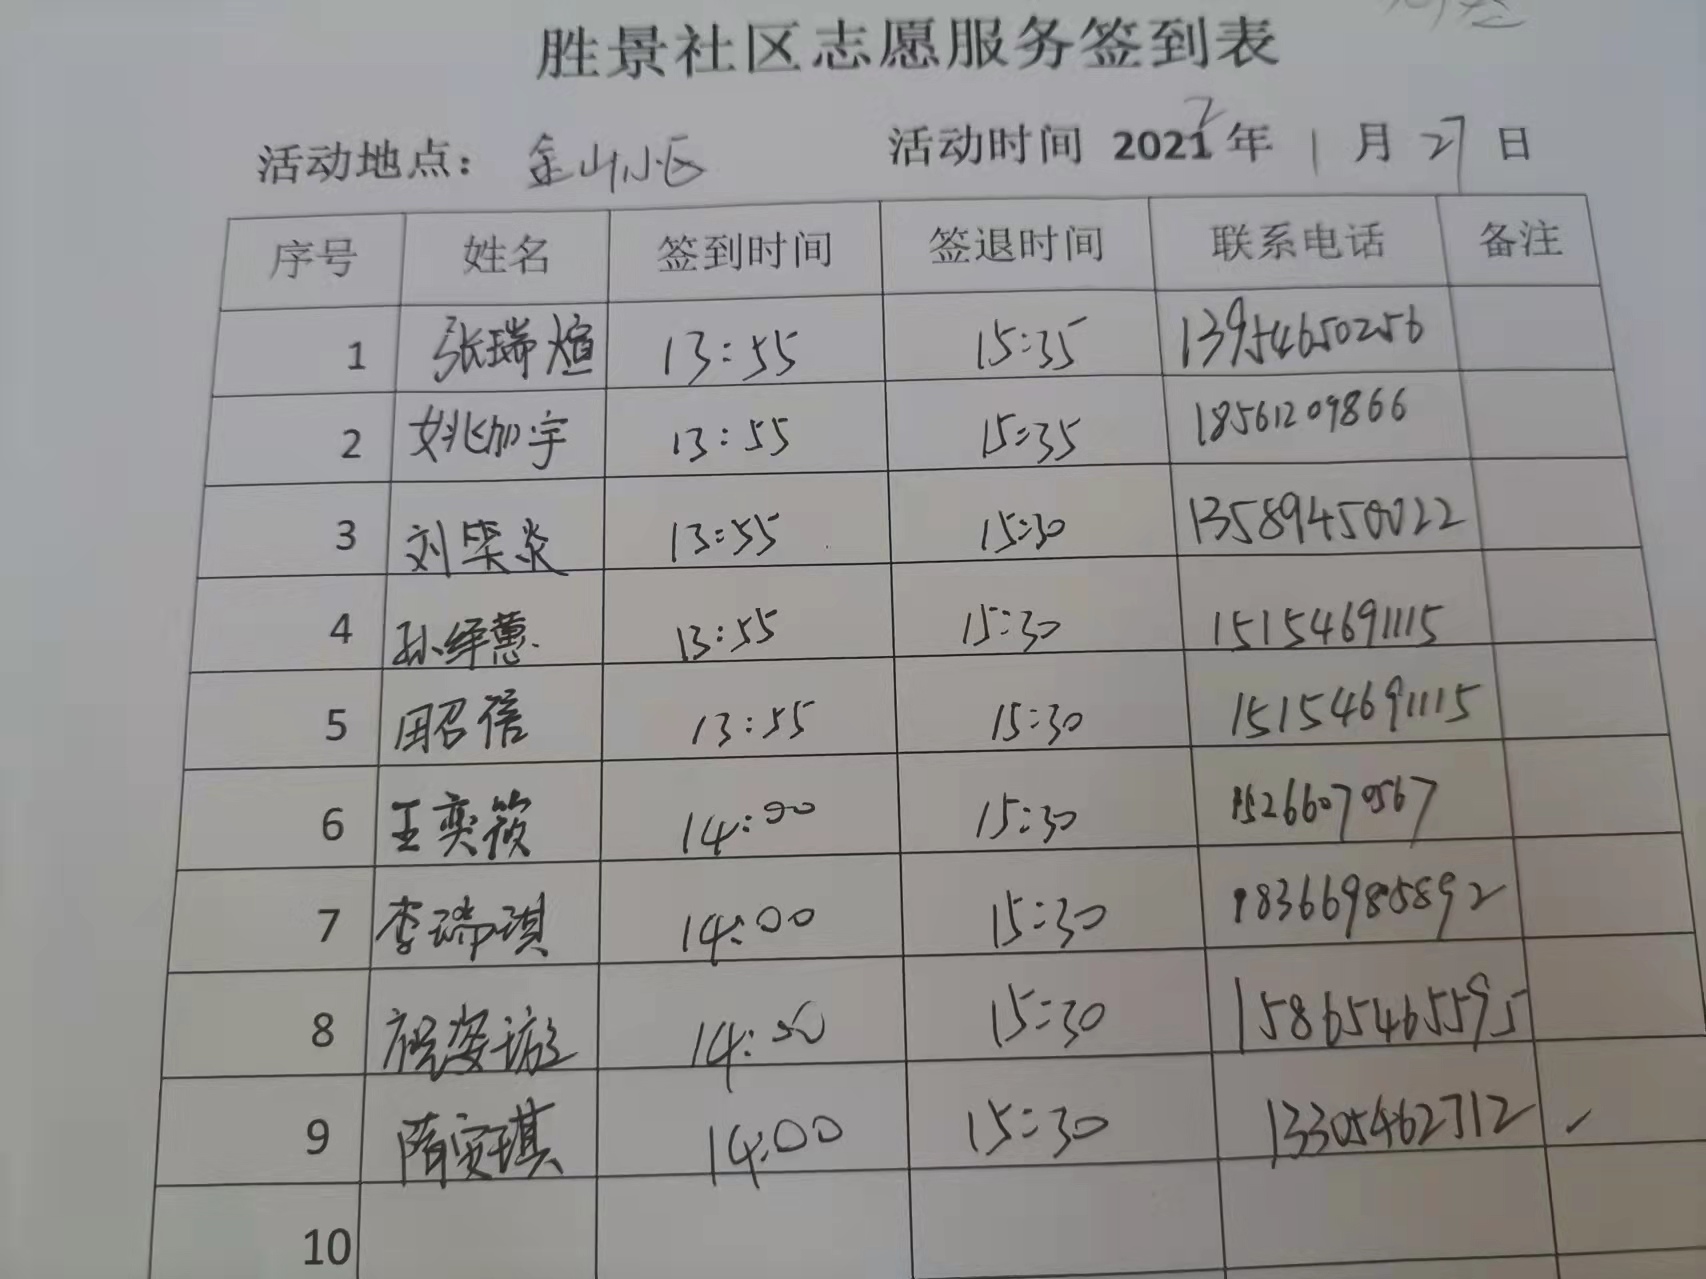 胜景社区志愿服务签到表
活动地点： 金山小区 活动时间 2022年 1月27日
序号 姓名 签到时间 签退时间 联系电话 备注
1 张瑞煊 13:55 15:35 13954650256
2 姚加宇 13:55 15:35 18561209866
3 刘栄炎 13:55 15:30 13589450022
4 孙绎蕙 13:55 15:30 15154691115
5 田昭信 13:55 15:30 15154691115
6 王奕筱 14:00 15:30 15266070567
7 李瑞琪 14:00 15:30 18366985892
8 祝姿 14:00 15:30 15865465595
9 隋安琪 14:00 15:30 13305462712 ✓
10